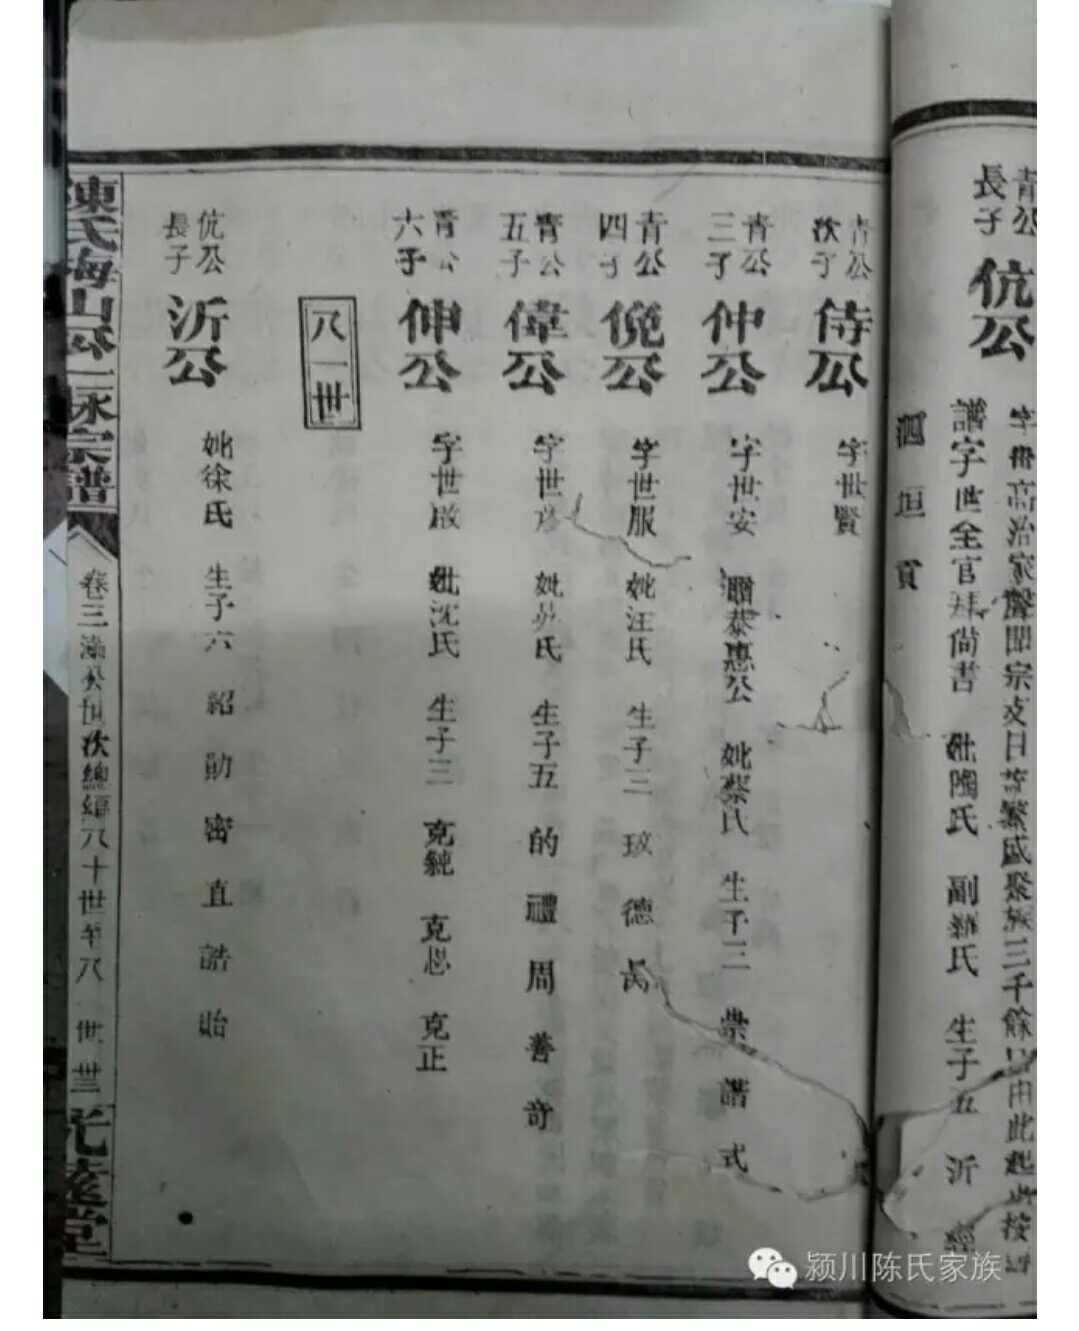 青公長子
伉公
字世高治家聲聞宗支日蕃繁盛聚族三千餘口由此起此按
譜字世全官拜尚書 妣陶氏 副羅氏 生子五 沂 經
泗 垣 貢
青公次子
侍公
字世賢
青公三子
仲公
字世安 贈恭惠公 妣蔡氏 生子三 崇 諧 式
青公四子
俛公
字世服 妣汪氏 生子三 玫 德 禼
青公五子
偉公
字世彦 妣氏 生子五 的 禮 周 善 奇
青公六子
伸公
字世啟 妣沈氏 生子三 克純 克思 克正
八一世
伉公長子
沂公
妣徐氏 生子六 紹 勛 密 直 誥 貽
陳氏梅山公一脉宗譜
卷三 公世次總編八十世至八一世 卅三
光遠堂
颍川陈氏家族